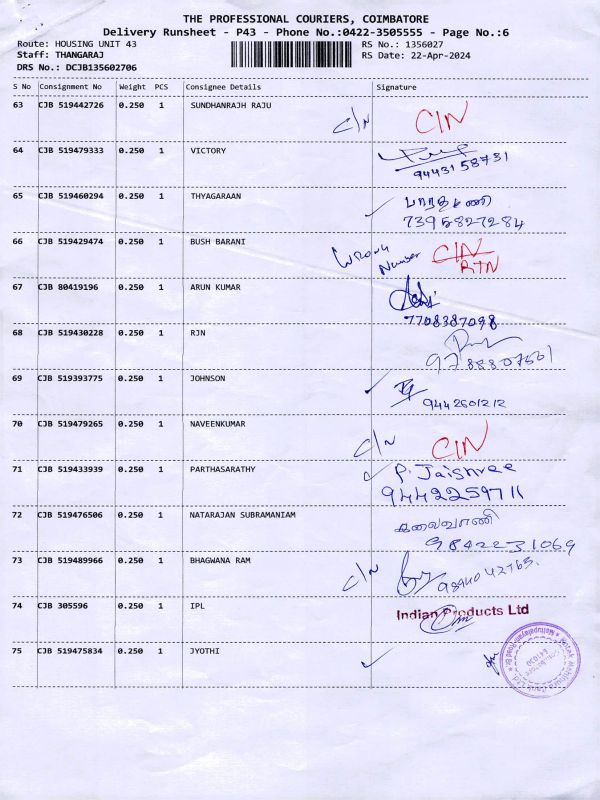 THE PROFESSIONAL COURIERS, COIMBATORE
Delivery Runsheet - P43 - Phone No.:0422-3505555 - Page No.:6
Route: HOUSING UNIT 43 RS No.: 1356027
Staff: THANGARAJ RS Date: 22-Apr-2024
DRS No.: DCJB135602706
S No Consignment No Weight PCS Consignee Details Signature
63 CJB 519442726 0.250 1 SUNDHANRAJH RAJU
C/N CIN
64 CJB 519479333 0.250 1 VICTORY
9443158731
65 CJB 519460294 0.250 1 THYAGARAAN
7395827284
66 CJB 519429474 0.250 1 BUSH BARANI
Wrong Number CIN
RTN
67 CJB 80419196 0.250 1 ARUN KUMAR
7708387098
68 CJB 519430228 0.250 1 RJN
69 CJB 519393775 0.250 1 JOHNSON
9442601212
70 CJB 519479265 0.250 1 NAVEENKUMAR
C/N CIN
71 CJB 519433939 0.250 1 PARTHASARATHY
P. Jaishree
9442259711
72 CJB 519476506 0.250 1 NATARAJAN SUBRAMANIAM
கலைவாணி
9842231069
73 CJB 519489966 0.250 1 BHAGWANA RAM
C/N
74 CJB 305596 0.250 1 IPL
Indian Products Ltd
75 CJB 519475834 0.250 1 JYOTHI